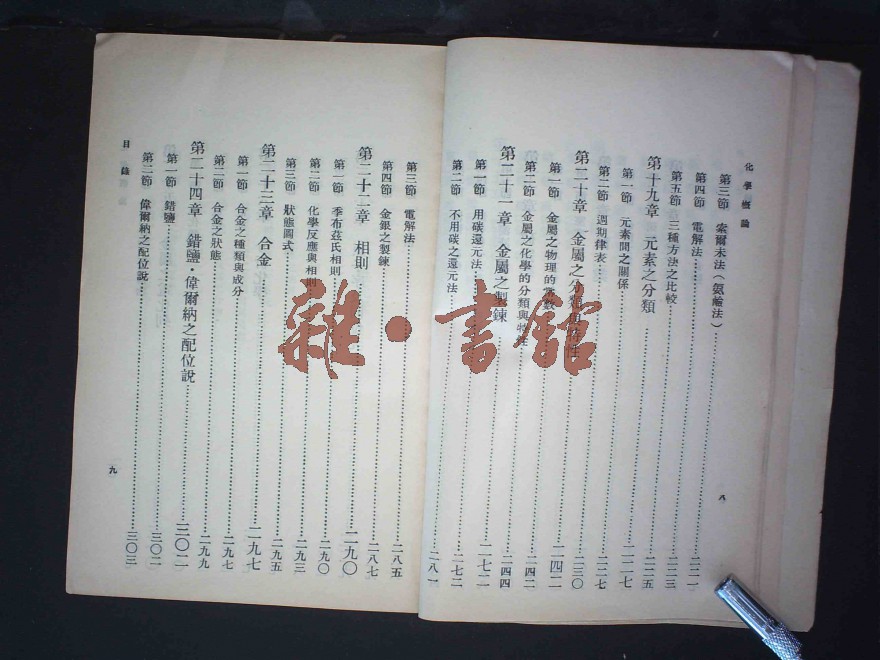 化學概論
第三節 索爾未法（氨鹼法）……二二一
第四節 電解法……二二二
第五節 三種方法之比較……二二三
第十九章 元素之分類……二二五
第一節 元素間之關係……二二七
第二節 週期律表……二二七
第二十章 金屬之分類與特性……二三〇
第一節 金屬之物理的常數……二四二
第二節 金屬之化學的分類與特性……二四二
第二十一章 金屬之製鍊……二四四
第一節 用碳還元法……二七二
第二節 不用碳之還元法……二七二
二八一
八
第三節 電解法……二八五
第四節 金銀之製鍊……二八七
第二十二章 相則……二九〇
第一節 季布茲氏相則……二九〇
第二節 化學反應與相則……二九三
第三節 狀態圖式……二九五
第二十三章 合金……二九七
第一節 合金之種類與成分……二九七
第二節 合金之狀態……二九九
第二十四章 錯鹽・偉爾納之配位說……三〇二
第一節 錯鹽……三〇二
第二節 偉爾納之配位說……三〇三
目錄
九
雜・書館